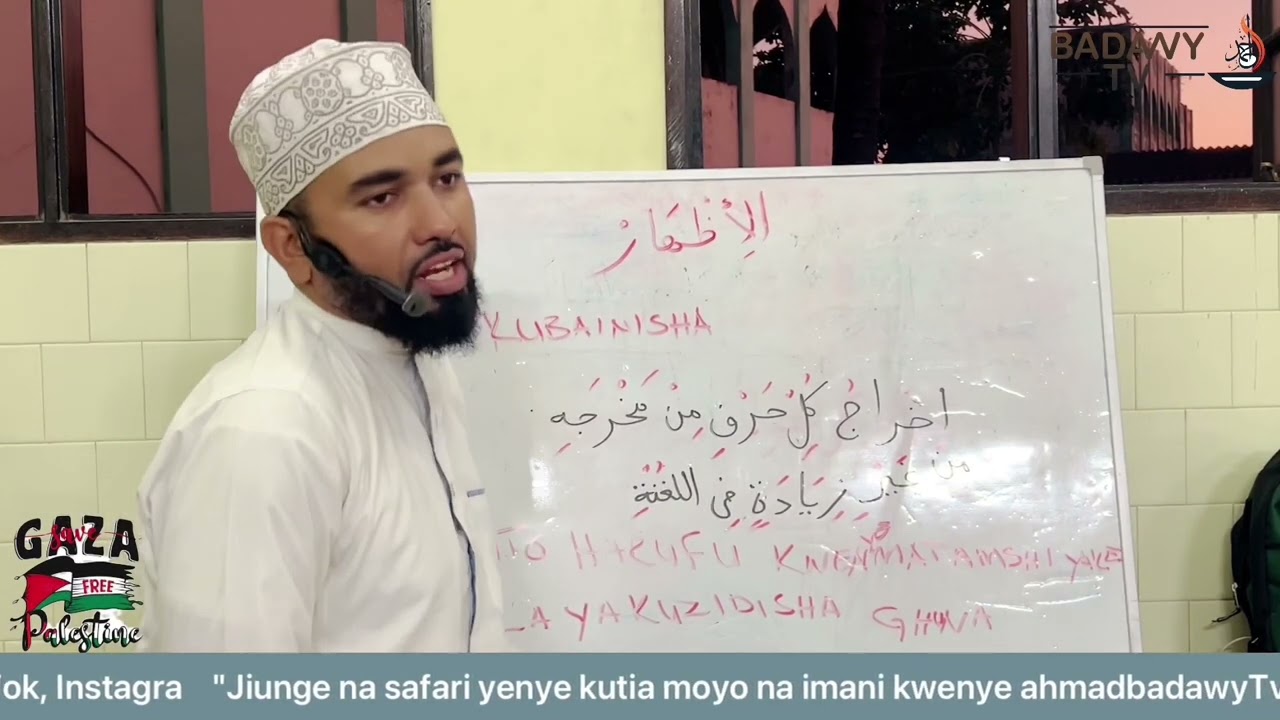 BADAWY
TV
الإِظْهَارْ
KUBAINISHA
اخراجُ كُلِّ حَرْفٍ مِنْ مَخْرَجَهِ
مِن غَيْرِ زِيَادَةٍ فِي الغُنَّةِ
HARUFU KWENYE MATAMSHI YAKE
YAKUZIDISHA GHUNA
GAZA
save
FREE
Palestine
ok, Instagra "Jiunge na safari yenye kutia moyo na imani kwenye ahmadbadawyTv